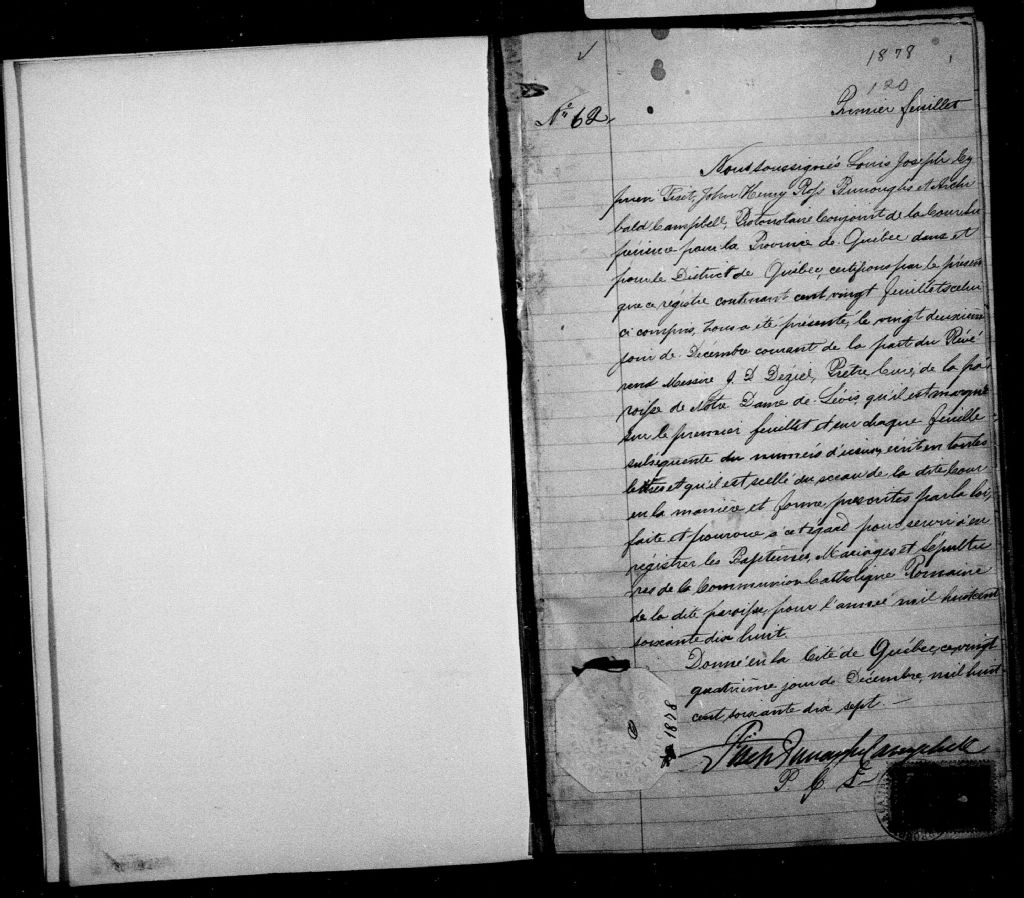 1878
1
120
Nº 62.
Premier feuillet
Nous soussignés Louis Joseph Cy
prien Fiset, John Henry Ross Burroughs et Archi
bald Campbell, Protonotaire Conjoint de la Cour Su
périeure pour la Province de Québec dans et
pour le District de Québec, certifions par le présent
que ce régistre contenant cent vingt feuillets celui
ci compris, nous a été présenté, le vingt deuxième
jour de Décembre courant de la part du Révé
rend Messire J. D. Déziel, Prêtre Curé, de la pa
roisse de Notre Dame de Lévis, qu'il est marqué
sur le premier feuillet et sur chaque feuille
subséquente du numéro d'icelui, écrit en toutes
lettres et qu'il est scellé du sceau de la dite Cour
en la manière et forme, prescrites par la loi,
faite et pourvue à cet égard pour servir à en
régistrer les Baptêmes, Mariages et Sépultu
res de la Communion Catholique Romaine
de la dite paroisse, pour l'année mil huit cent
soixante dix huit.
Donné en la Cité de Québec, ce vingt
quatrième jour de Décembre, mil huit
cent soixante dix sept. —
1878
Fiset Burroughs Campbell
P. C. S.